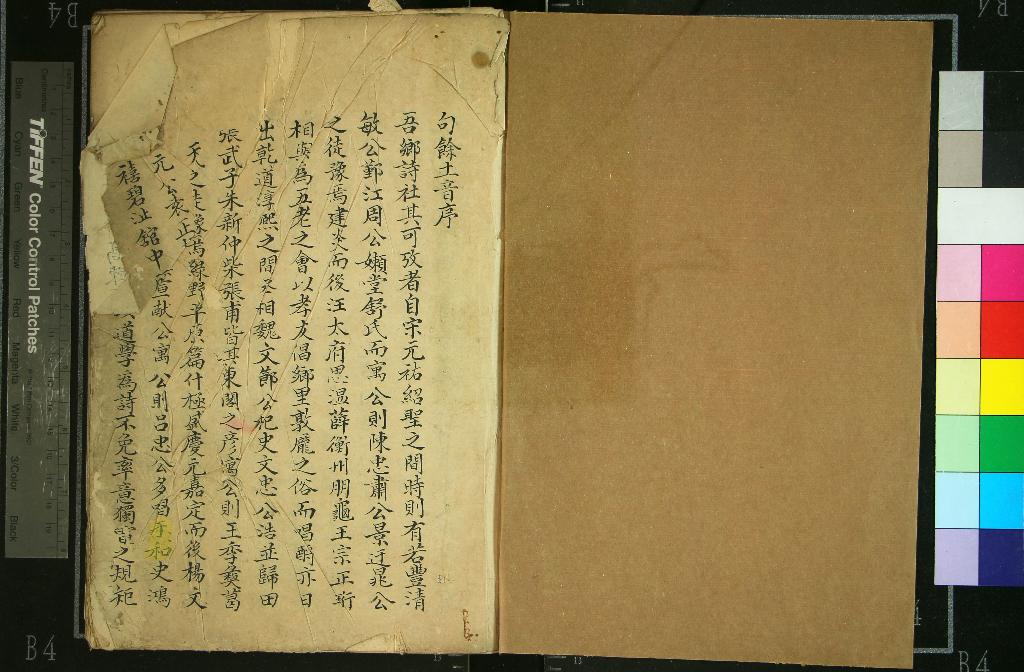 句餘土音序
吾鄉詩社其可攷者自宋元祐紹聖之間時則有若豐清
敏公鄞江周公嬾堂舒氏而寓公則陳忠肅公景迂晁公
之徒豫焉建炎而後汪太府思温薛衡州朋龜王宗正珩
相與為五老之會以孝友倡鄉里敦龐之俗而唱酧亦日
出乾道淳熙之間丞相魏文節公杞史文忠公浩並歸田
張武子朱新仲柴張甫皆其東閣之彦寓公則王季彝葛
天之徒豫焉綠野平原篇什極盛慶元嘉定而後楊文
元公袁正獻公寓公則呂忠公多唱和史鴻
禧碧沚館中
道學為詩不免率意獨之規矩
TIFFEN Color Control Patches
Blue
Cyan
Green
Yellow
Red
Magenta
White
3/Color
Black
B4
B4
B4
B4